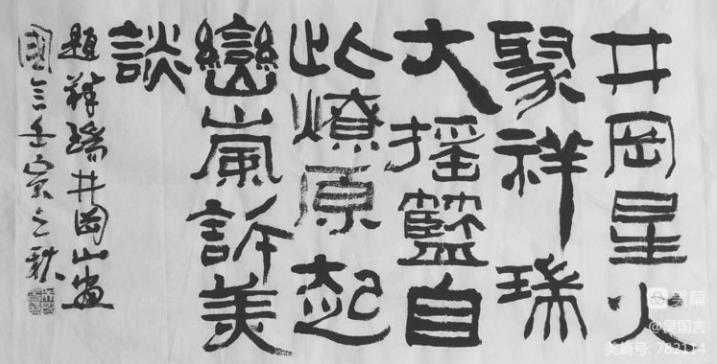 井岡星火
聚祥瑞
大搖籃自
此燎原起
巒嵐訴美
談
題祥瑞井岡山畫
國言壬寅之秋
美篇
@吴国言
美篇号: 782114